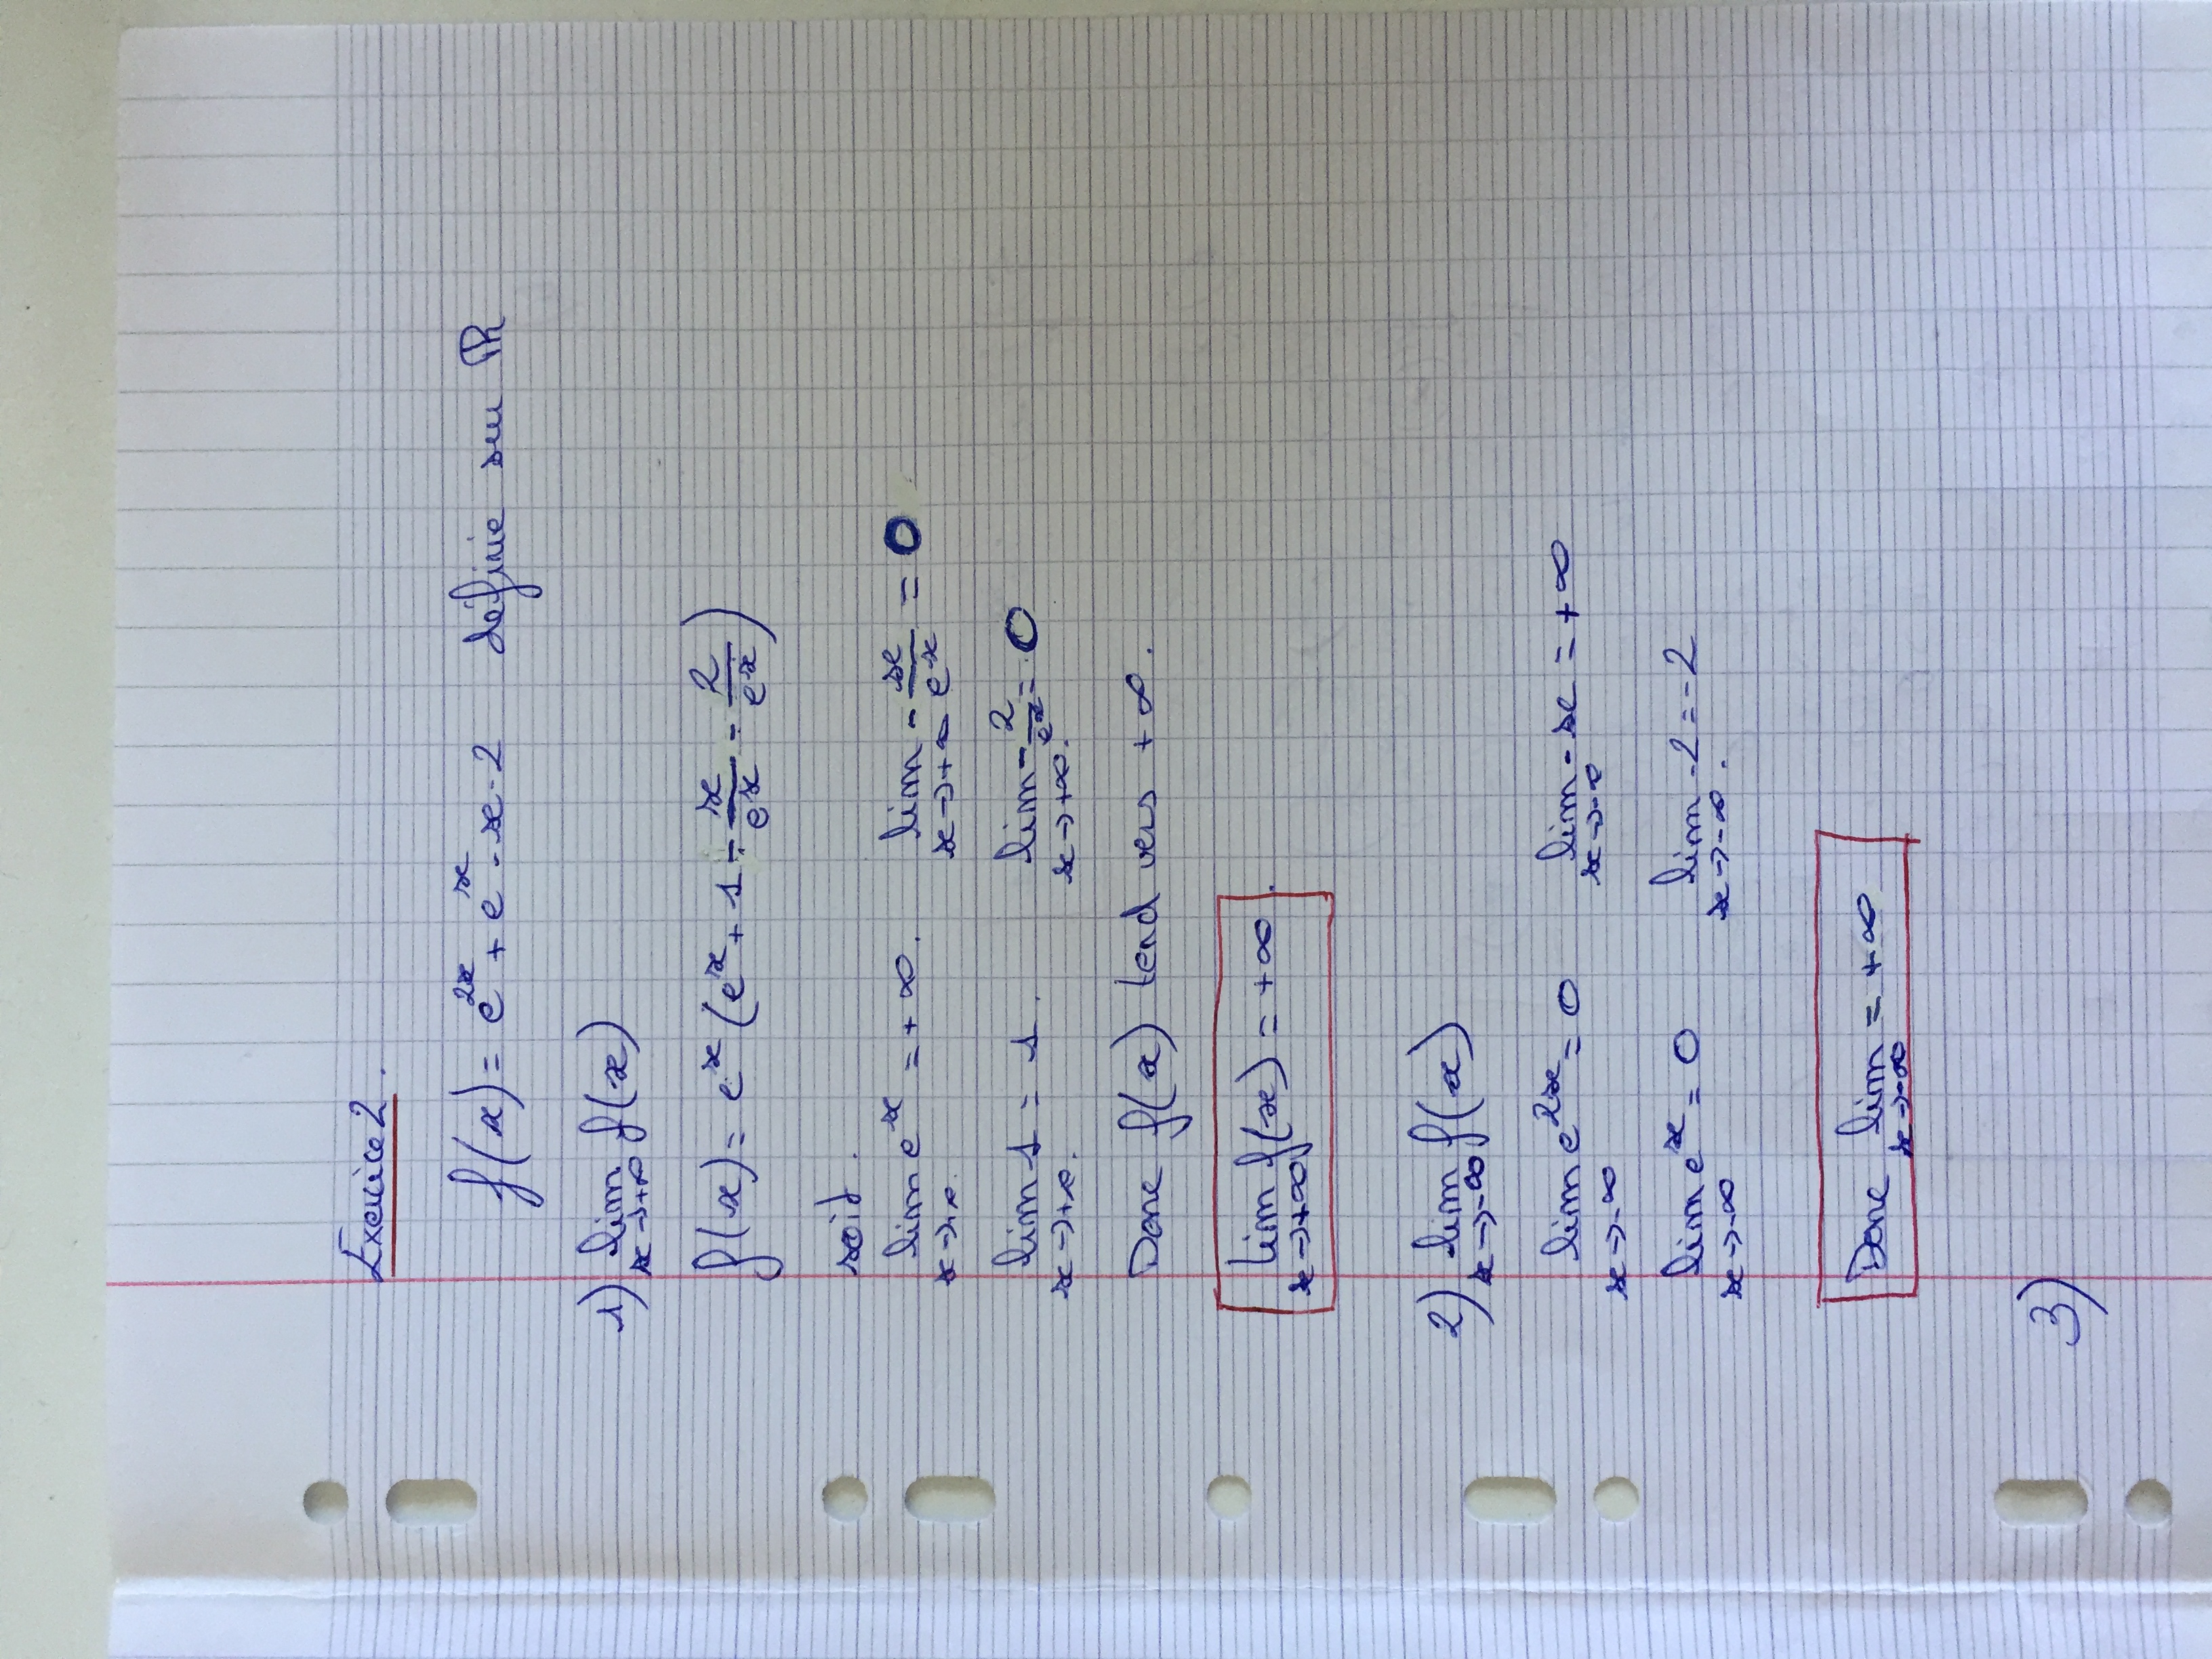 Exercice 2.
f(x) = e^{2x} + e^x - x - 2 définie sur ℝ
1) lim f(x)
x→+∞
f(x) = e^x (e^x + 1 - x/e^x - 2/e^x)
soit.
lim e^x = +∞. lim - x/e^x = 0
x→+∞ x→+∞
lim 1 = 1. lim - 2/e^x = 0
x→+∞. x→+∞.
Donc f(x) tend vers +∞.
lim f(x) = +∞.
x→+∞
2) lim f(x)
x→-∞
lim e^{2x} = 0 lim - x = +∞
x→-∞ x→-∞
lim e^x = 0 lim -2 = -2
x→-∞ x→-∞.
Donc lim = +∞
x→-∞
3)